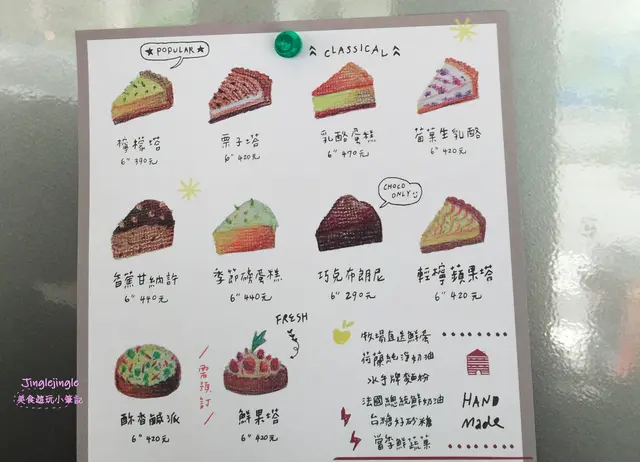 ★ POPULAR ★
CLASSICAL
檸檬塔
6" 390元
栗子塔
6" 420元
乳酪蛋糕
6" 470元
莓菓生乳酪
6" 420元
CHOCO
ONLY
香蕉甘納許
6" 440元
季節磅蛋糕
6" 440元
巧克布朗尼
6" 290元
輕檸蘋果塔
6" 420元
FRESH
酥香鹹派
6" 420元
需預訂
鮮果塔
6" 420元
牧場直送鮮蛋
荷蘭純淨奶油
水手牌麵粉
法國總統鮮奶油
台糖好砂糖
當季鮮蔬菓
HAND
Made
Jinglejingle
美食趣玩小筆記